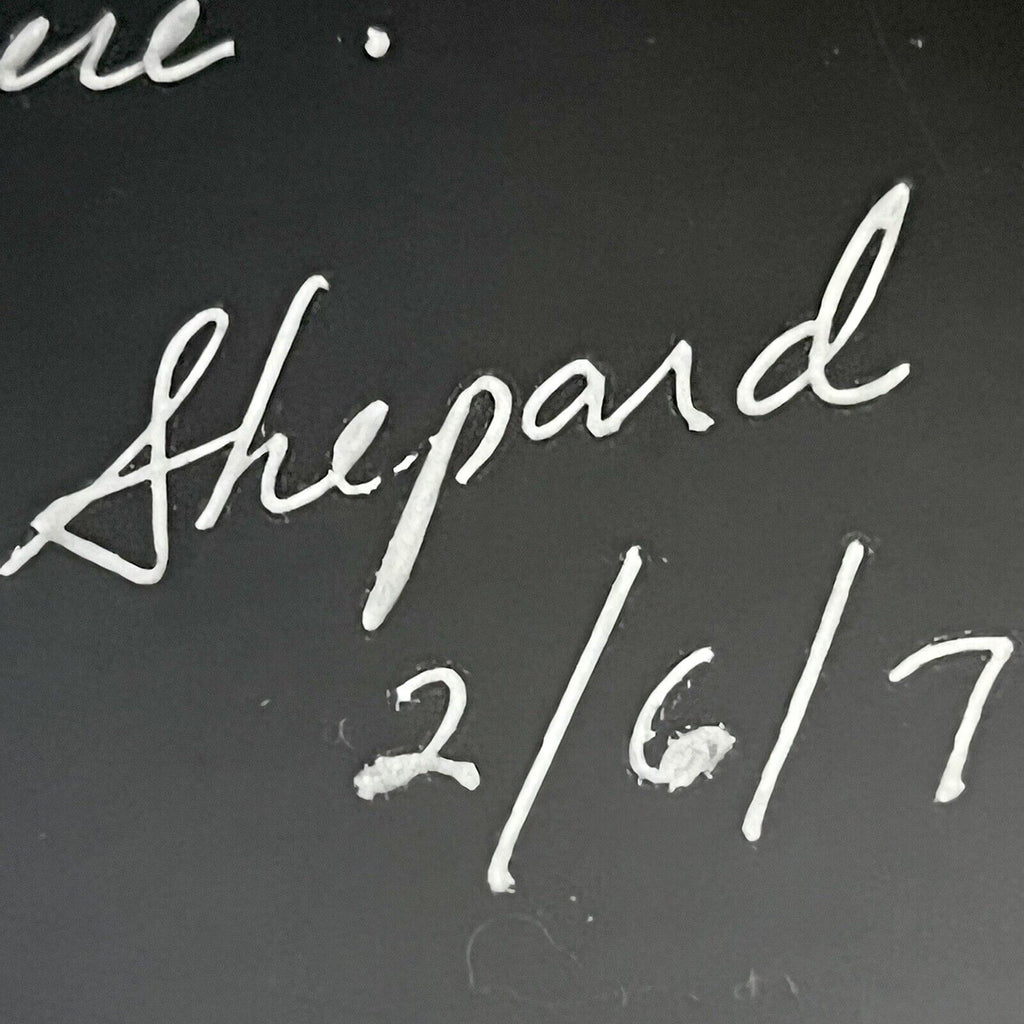 ere.
Shepard
2/6/7